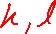 k, l